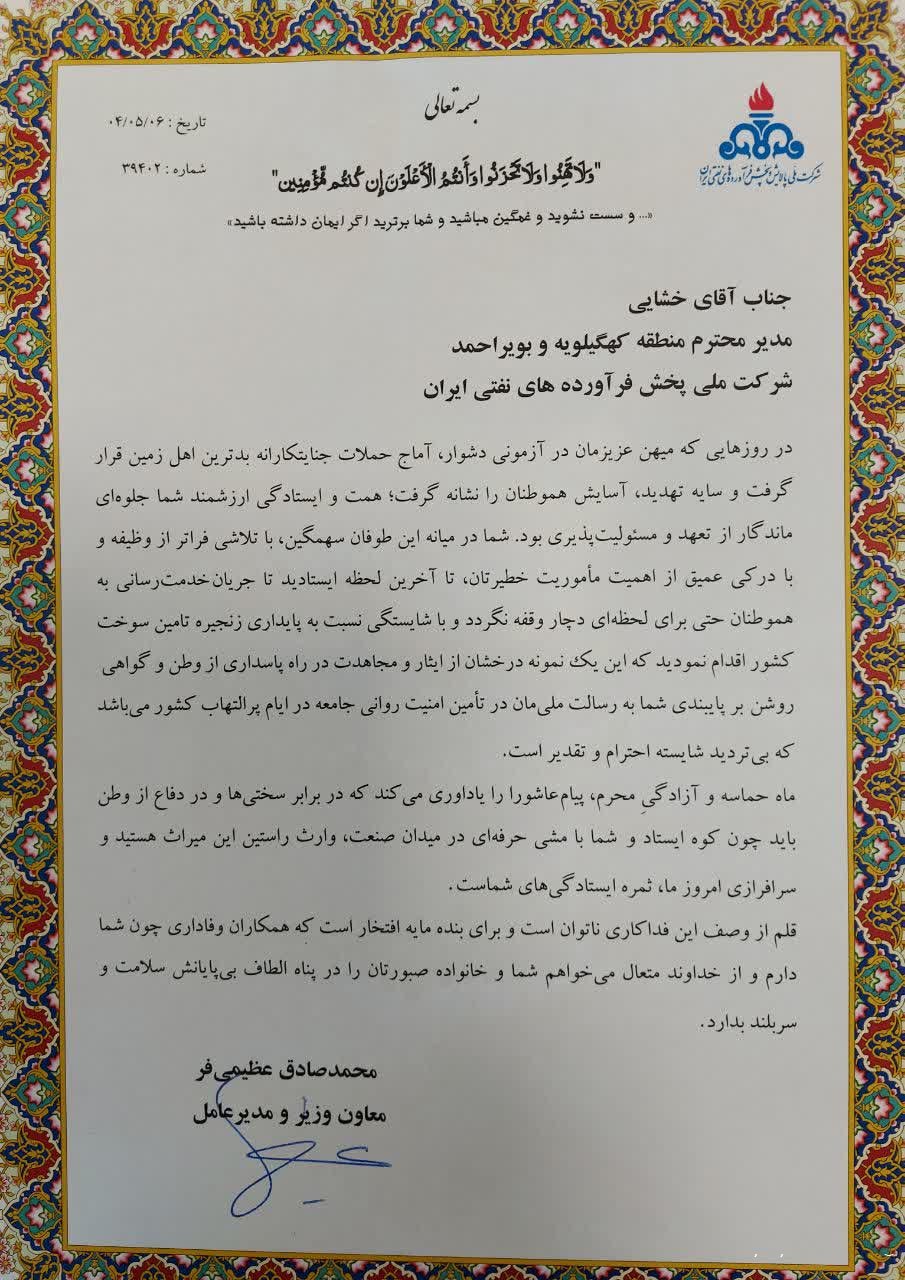 بسمه تعالی
تاریخ : ۰۴/۰۵/۰۶
شماره : ۳۹۴۰۲
شرکت ملی پالایش و پخش فرآورده‌های نفتی ایران
"وَلَا تَهِنُوا وَلَا تَحْزَنُوا وَأَنتُمُ الْأَعْلَوْنَ إِن كُنتُم مُّؤْمِنِين"
«... و سست نشوید و غمگین مباشید و شما برترید اگر ایمان داشته باشید»
جناب آقای خشایی
مدیر محترم منطقه کهگیلویه و بویراحمد
شرکت ملی پخش فرآورده های نفتی ایران
در روزهایی که میهن عزیزمان در آزمونی دشوار، آماج حملات جنایتکارانه بدترین اهل زمین قرار
گرفت و سایه تهدید، آسایش هموطنان را نشانه گرفت؛ همت و ایستادگی ارزشمند شما جلوه‌ای
ماندگار از تعهد و مسئولیت‌پذیری بود. شما در میانه این طوفان سهمگین، با تلاشی فراتر از وظیفه و
با درکی عمیق از اهمیت مأموریت خطیرتان، تا آخرین لحظه ایستادید تا جریان‌خدمت‌رسانی به
هموطنان حتی برای لحظه‌ای دچار وقفه نگردد و با شایستگی نسبت به پایداری زنجیره تامین سوخت
کشور اقدام نمودید که این یک نمونه درخشان از ایثار و مجاهدت در راه پاسداری از وطن و گواهی
روشن بر پایبندی شما به رسالت ملی‌مان در تأمین امنیت روانی جامعه در ایام پرالتهاب کشور می‌باشد
که بی‌تردید شایسته احترام و تقدیر است.
ماه حماسه و آزادگیِ محرم، پیام‌عاشورا را یاداوری می‌کند که در برابر سختی‌ها و در دفاع از وطن
باید چون کوه ایستاد و شما با مشی حرفه‌ای در میدان صنعت، وارث راستین این میراث هستید و
سرافرازی امروز ما، ثمره ایستادگی‌های شماست.
قلم از وصف این فداکاری ناتوان است و برای بنده مایه افتخار است که همکاران وفاداری چون شما
دارم و از خداوند متعال می‌خواهم شما و خانواده صبورتان را در پناه الطاف بی‌پایانش سلامت و
سربلند بدارد.
محمدصادق عظیمی‌فر
معاون وزیر و مدیرعامل